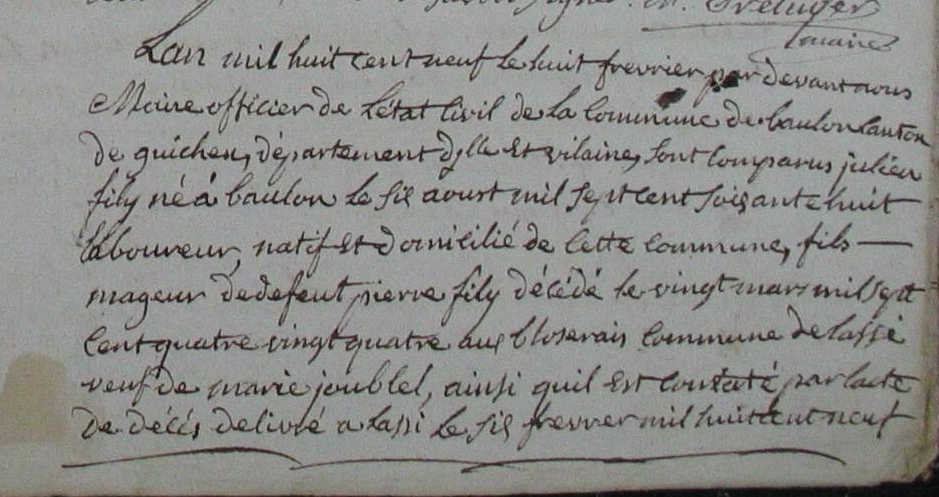 Lan mil huit cent neuf le huit frevrier par devant nous
Maire officier de Létat Civil de la Commune de baulon Canton
de guichen, département dylle Et vilaine, sont comparus julien
fily né á baulon le six aoust mil sept cent soixante huit
laboureur, natif Et domicilié de Cette Commune, fils —
mageur de defeut pierre fily décédé le vingt mars mil sept
Cent quatre vingt quatre aux Commune de lassi
veuf de marie joublel, ainsi quil Est constaté par lacte
de décés delivré a lassi le six frevrer mil huit cent neuf